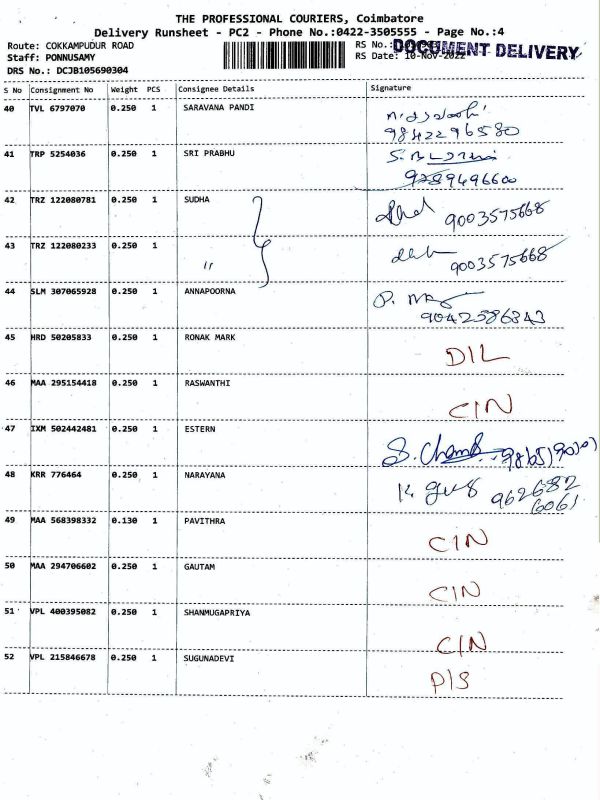 THE PROFESSIONAL COURIERS, Coimbatore
Delivery Runsheet - PC2 - Phone No.:0422-3505555 - Page No.:4
Route: COKKAMPUDUR ROAD
RS No.: DOCUMENT DELIVERY
Staff: PONNUSAMY
RS Date: 10-Nov-2022
DRS No.: DCJB105690304
S No Consignment No Weight PCS Consignee Details Signature
40 TVL 6797070 0.250 1 SARAVANA PANDI
9842296580
41 TRP 5254036 0.250 1 SRI PRABHU
9789496600
42 TRZ 122080781 0.250 1 SUDHA
9003575668
43 TRZ 122080233 0.250 1 "
9003575668
44 SLM 307065928 0.250 1 ANNAPOORNA
9042586343
45 HRD 50205833 0.250 1 RONAK MARK
DIL
46 MAA 295154418 0.250 1 RASWANTHI
CIN
47 IXM 502442481 0.250 1 ESTERN
48 KRR 776464 0.250 1 NARAYANA
962682
6061
49 MAA 568398332 0.130 1 PAVITHRA
CIN
50 MAA 294706602 0.250 1 GAUTAM
CIN
51 VPL 400395082 0.250 1 SHANMUGAPRIYA
CIN
52 VPL 215846678 0.250 1 SUGUNADEVI
P/S